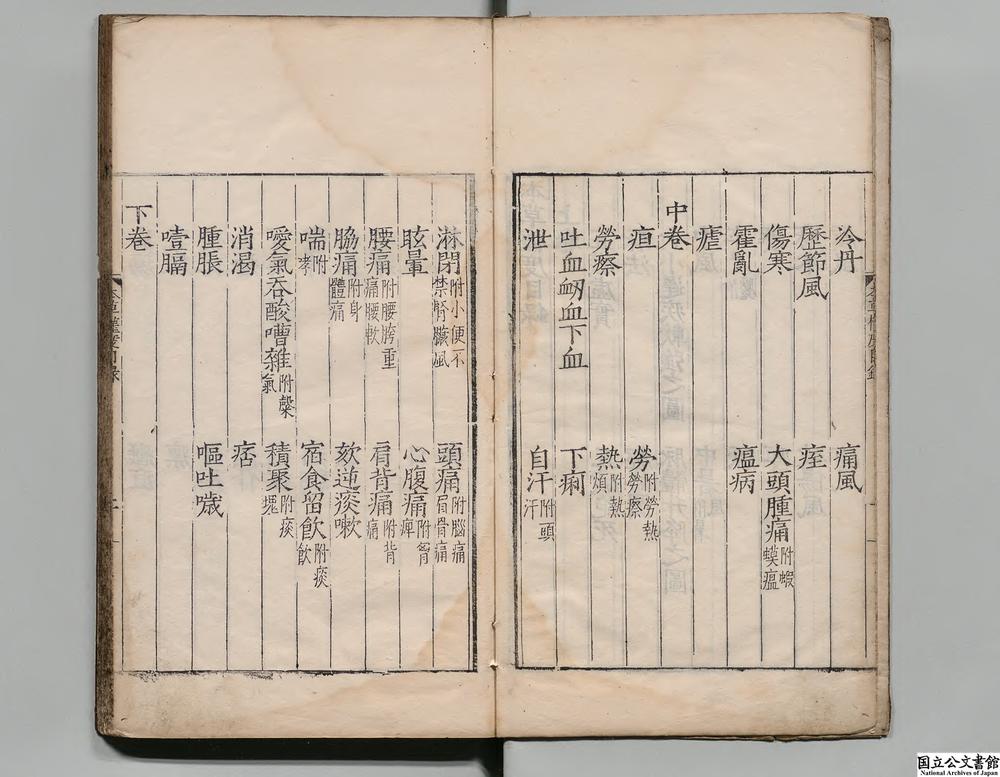 冷丹 痛風
歷節風 痓
傷寒 大頭腫痛附蝦蟆瘟
霍亂 瘟病
瘧
中卷
疸 勞附勞熱勞瘵
勞瘵 熱附熱煩
吐血衂血下血 下痢
泄 自汗附頭汗
淋閉附小便不禁腎臟風 頭痛附腦痛眉骨痛
眩暈 心腹痛附胷痺
腰痛附腰胯重痛腰軟 肩背痛附背痛
脇痛附身體痛 欬逆痰嗽
喘附哮 宿食留飲附痰飲
噯氣吞酸嘈雜附氣 積聚附痰塊
消渴 痞
腫脹 嘔吐噦
噎膈
下卷
本草權度目錄
国立公文書館
National Archives of Japan